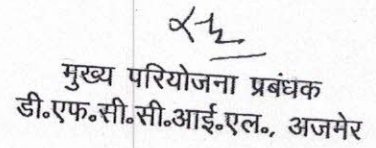 मुख्य परियोजना प्रबंधक
डी०एफ०सी०सी०आई०एल०, अजमेर